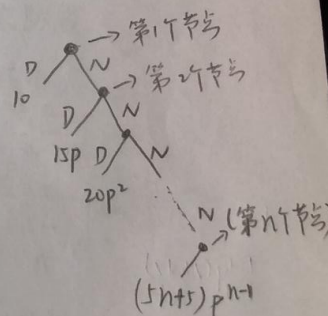 → 第1个节点
D N
10
→ 第2个节点
D N
15p
D N
20p²
N
→ (第n个节点)
(5n+5) pⁿ⁻¹